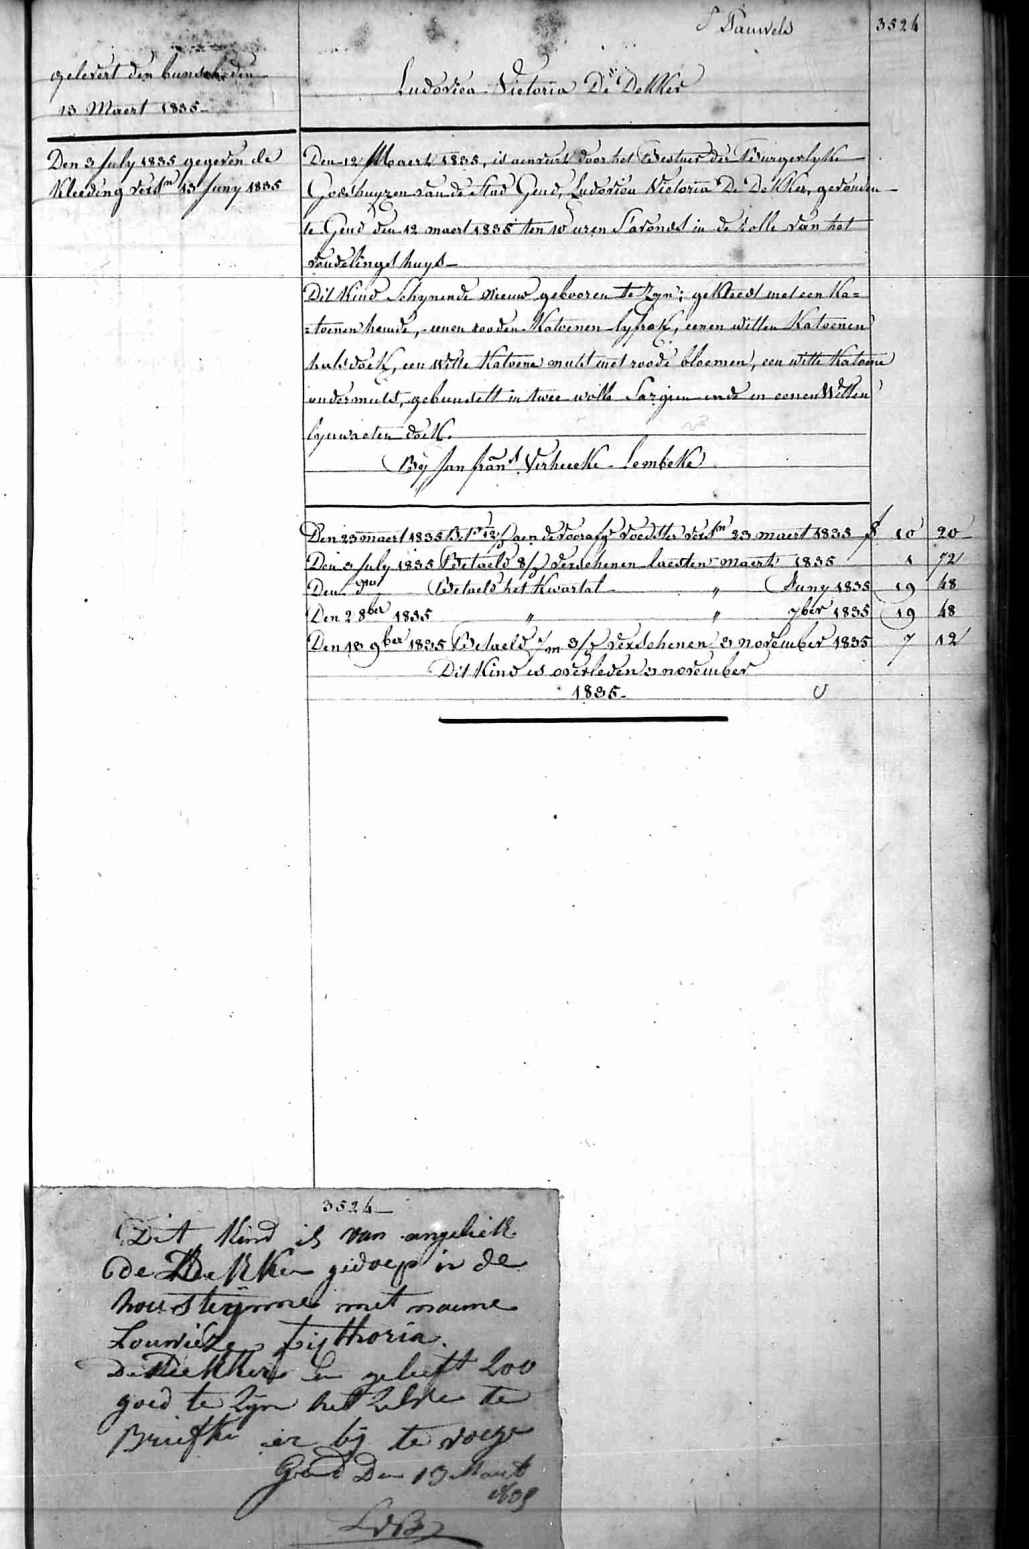 P Pauwels 3524
gelevert den bunsel den
13 Maert 1835
Ludovica Victoria De Dekker
Den 3 July 1835 gegeven de
Kleeding versn 13 Juny 1835
Den 12 Maert 1835, is aenveirt door het Bestuer der Burgerlyke
Godshuyzen van de stad Gend, Ludovica Victoria De Dekker, gevonden
te Gend den 12 maert 1835 ten 10 uren S'avonds in de rolle van het
vondelinghuys
Dit Kind Schynende nieuw gebooren te zyn; gekleed met een Ka=
=toenen hemde, eenen rooden Katoenen lyfrok, eenen witten Katoenen
halsdoek, een witte Katoene muts met roode bloemen, een witte Katoene
ondermuts, gebunselt in twee wolle Sargien ende in eenen Witten
lynwaeten doek.
By Jan frans Verheecke Lembeke
Den 23 maert 1835 Bet. aen de voorafge voedster versn 23 maert 1835 f 10 20
Den 3 July 1835 Betaeld 8/ verschenen laesten maert 1835 1 72
Den do Betaeld het Kwartal " Juny 1835 19 48
Den 2 8ber 1835 " " 7ber 1835 19 48
Den 13 9ber 1835 Betaeld 3/ verschenen 3 november 1835 7 12
Dit Kind is overleden 3 november
1835
3524
Dit Kind is van angeliek
de Dekker gedoep in de
met name
Louwieze fijthoria
De Dekker en geliest zoo
goed te zyn het zelve te
Briefke er bij te voege
Gend Den 13 Maert
1835